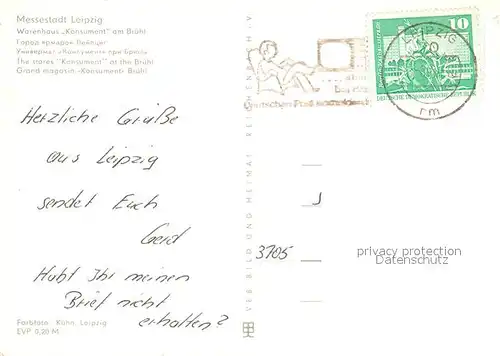 Messestadt Leipzig
Warenhaus „Konsument" am Brühl
Город ярмарок Лейпциг
Универмаг «Консумент» при Брюль
The stores "Konsument" at the Brühl
Grand magasin «Konsument» Brühl
Herzliche Grüße
aus Leipzig
sendet Euch
Gerd
Habt Ihr meinen
Brief nicht
erhalten?
Farbfoto: Kühn, Leipzig
EVP 0,20 M
VER BILD UND HEIMAT REICHENBACH
10
DEUTSCHE DEMOKRATISCHE REPUBLIK
LEIPZIG
rm
bei der
Deutschen Post
J
3705
privacy protection
Datenschutz